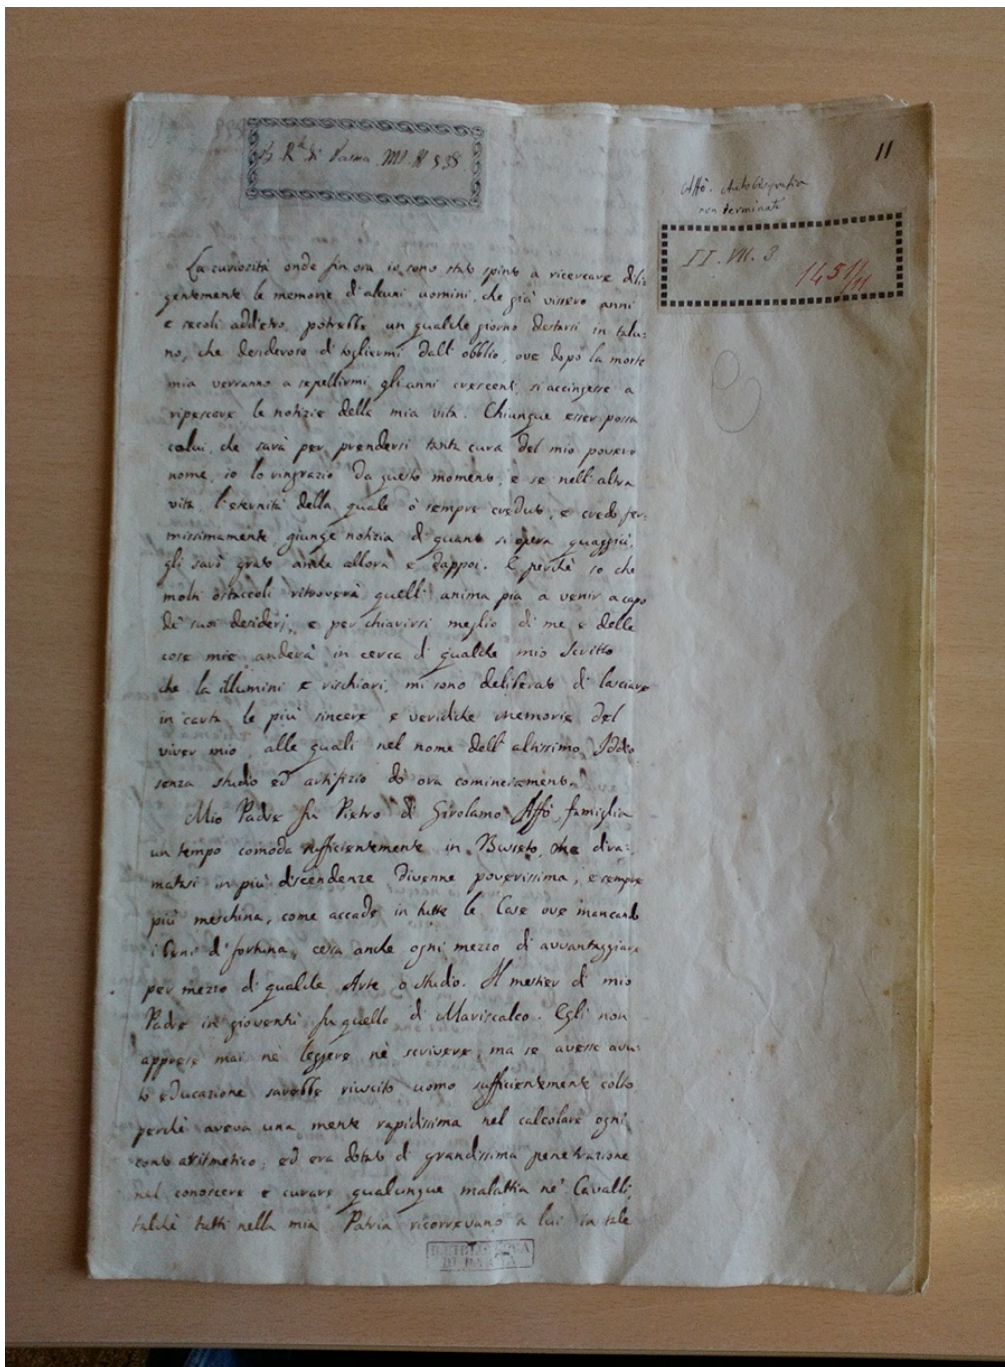 B. R.ª di Parma. MS. N 538.
11
Affò. Autobiografia
non terminata
II. VII. 3
1451/11
La curiosità onde fin ora io sono stato spinto a ricercare dili-
gentemente le memorie d'alcuni uomini, che già vissero anni
e secoli addietro, potrebbe un qualche giorno destarsi in talu-
no, che desideroso di togliermi dall'obblio, ove dopo la morte
mia verranno a sepellirmi gli anni crescenti, si accingesse a
ripescare le notizie della mia vita. Chiunque esser possa
colui, che sarà per prendersi tanta cura del mio povero
nome, io lo ringrazio da questo momento, e se nell'altra
vita, l'eternità della quale ò sempre creduto, e credo fer-
missimamente, giunge notizia di quanto si opera quaggiù,
gli sarò grato anche allora e dappoi. E perchè so che
molti ostaccoli ritroverà quell'anima pia a venir a capo
de' suoi desiderj, e per chiarirsi meglio di me e delle
cose mie anderà in cerca di qualche mio Scritto
che la illumini e rischiari, mi sono deliberato di lasciare
in carta le più sincere e veridiche memorie del
viver mio, alle quali nel nome dell'altissimo Iddio
senza studio ed artifizio dò ora cominciamento.
Mio Padre fu Pietro di Girolamo Affò, famiglia
un tempo comoda sufficientemente in Busseto, che dira-
matasi in più discendenze divenne poverissima, e sempre
più meschina, come accade in tutte le Case ove mancando
i beni di fortuna, cessa anche ogni mezzo di avvantaggiare
per mezzo di qualche Arte o studio. Il mestier di mio
Padre in gioventù fu quello di Mariscalco. Egli non
apprese mai nè leggere nè scrivere, ma se avesse avu-
to educazione sarebbe riuscito uomo sufficientemente colto
perchè aveva una mente rapidissima nel calcolare ogni
conto aritmetico, ed era dotato di grandissima penetrazione
nel conoscere e curare qualunque malattia ne' Cavalli,
talchè tutti nella mia Patria ricorrevano a lui in tale
R. BIBLIOTECA
DI PARMA